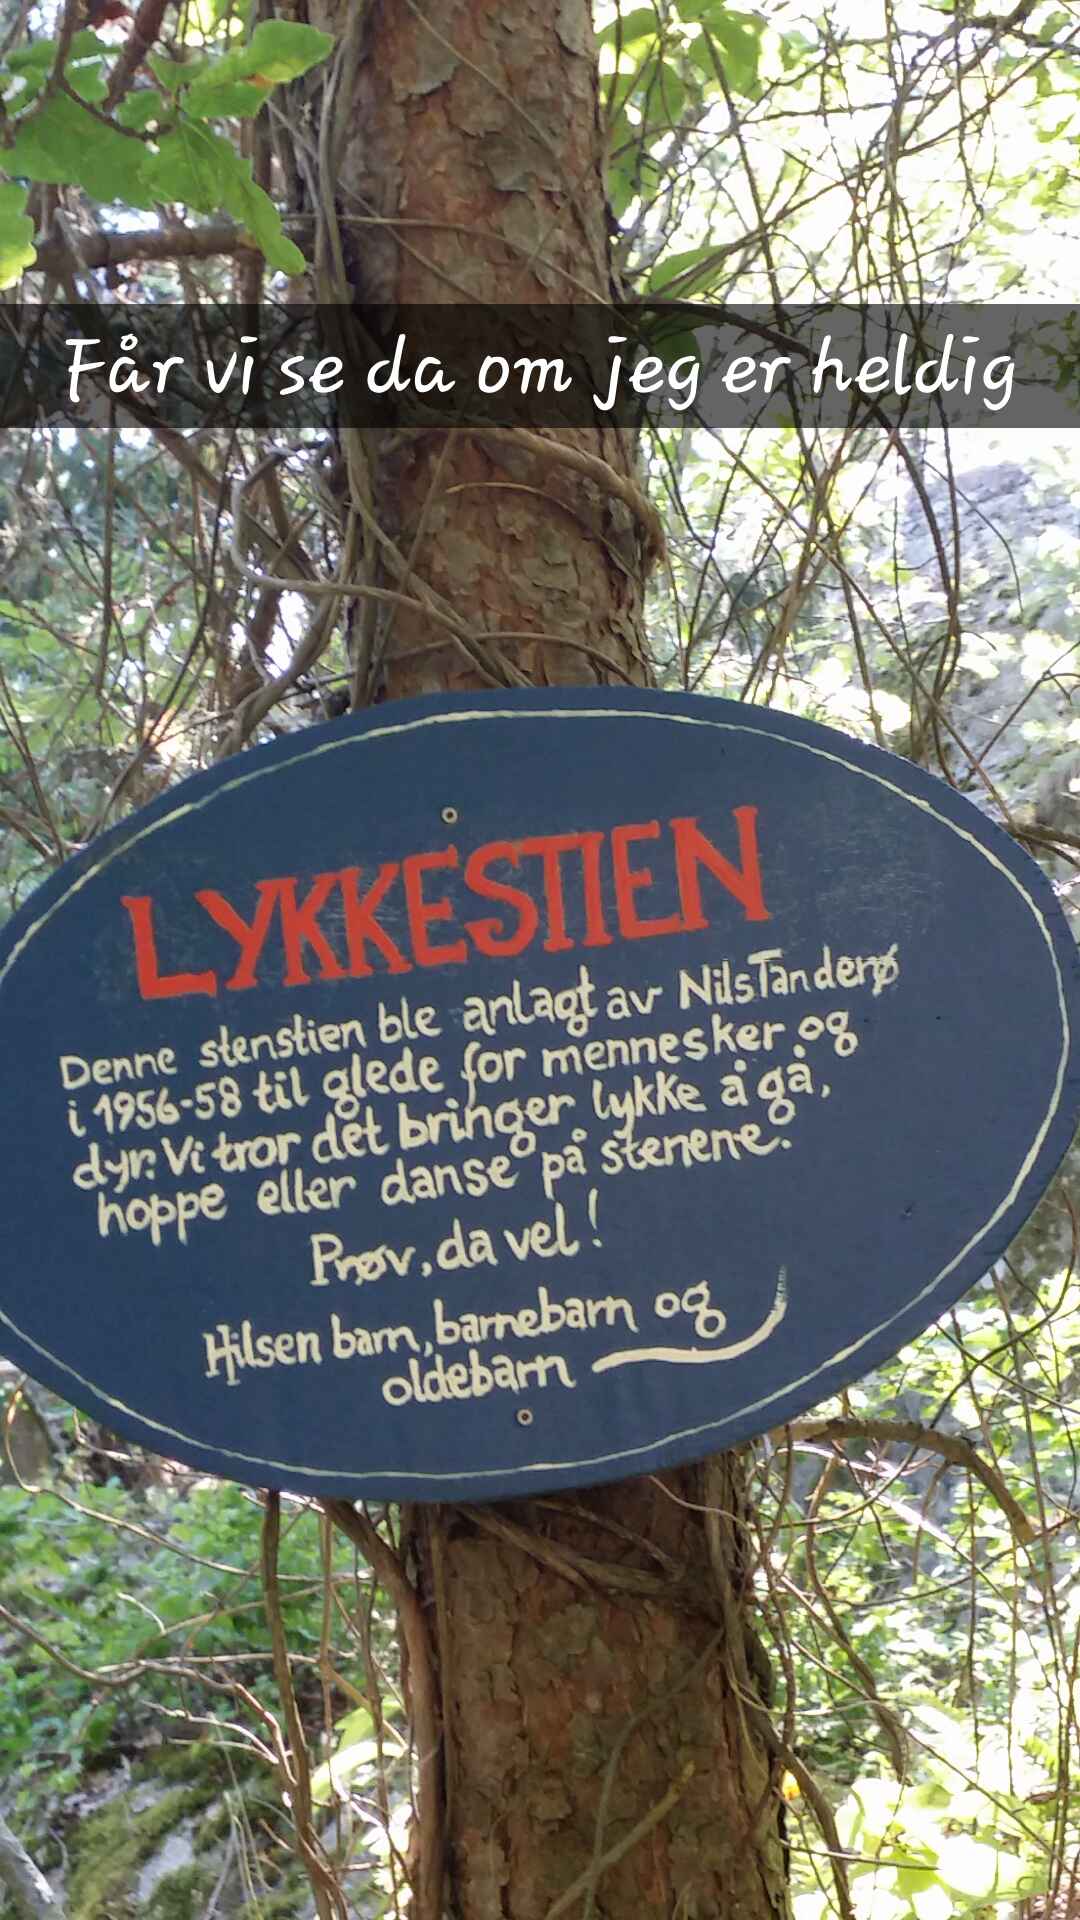 Får vi se da om jeg er heldig
LYKKESTIEN
Denne stenstien ble anlagt av Nils Tanderø
i 1956-58 til glede for mennesker og
dyr. Vi tror det bringer lykke å gå,
hoppe eller danse på stenene.
Prøv, da vel!
Hilsen barn, barnebarn og
oldebarn